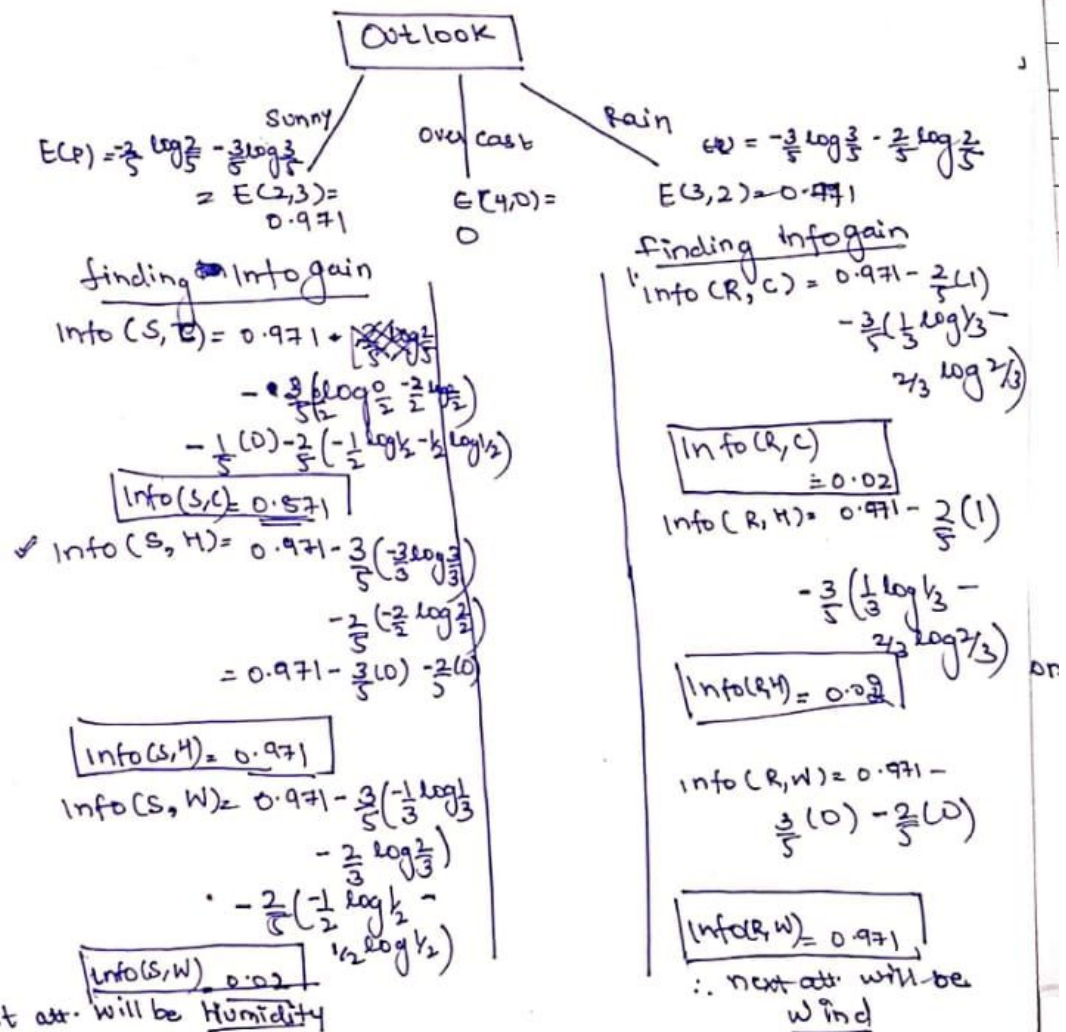 Outlook
Sunny
Over cast
Rain
E(P) = -2/5 log 2/5 - 3/5 log 3/5
= E(2,3) =
0.971
E(4,0) =
0
= -3/5 log 3/5 - 2/5 log 2/5
E(3,2) = 0.971
finding Info gain
Info (S, C) = 0.971
- 1/5 (0) - 2/5 (-1/2 log 1/2 - 1/2 log 1/2)
Info(S,C) = 0.571
✓ Info (S, H) = 0.971 - 3/5 (-3/3 log 3/3)
- 2/5 (-2/2 log 2/2)
= 0.971 - 3/5 (0) - 2/5 (0)
Info(S,H) = 0.971
Info (S, W) = 0.971 - 3/5 (-1/3 log 1/3
- 2/3 log 2/3)
- 2/5 (-1/2 log 1/2 -
1/2 log 1/2)
Info(S,W) = 0.02
t attr. will be Humidity
finding Info gain
Info (R, C) = 0.971 - 2/5 (1)
- 3/5 (1/3 log 1/3 -
2/3 log 2/3)
Info (R, C)
= 0.02
Info (R, H) = 0.971 - 2/5 (1)
- 3/5 (1/3 log 1/3 -
2/3 log 2/3)
Info(R,H) =
Info (R, W) = 0.971 -
3/5 (0) - 2/5 (0)
Info(R,W) = 0.971
∴ next attr. will be
Wind
on